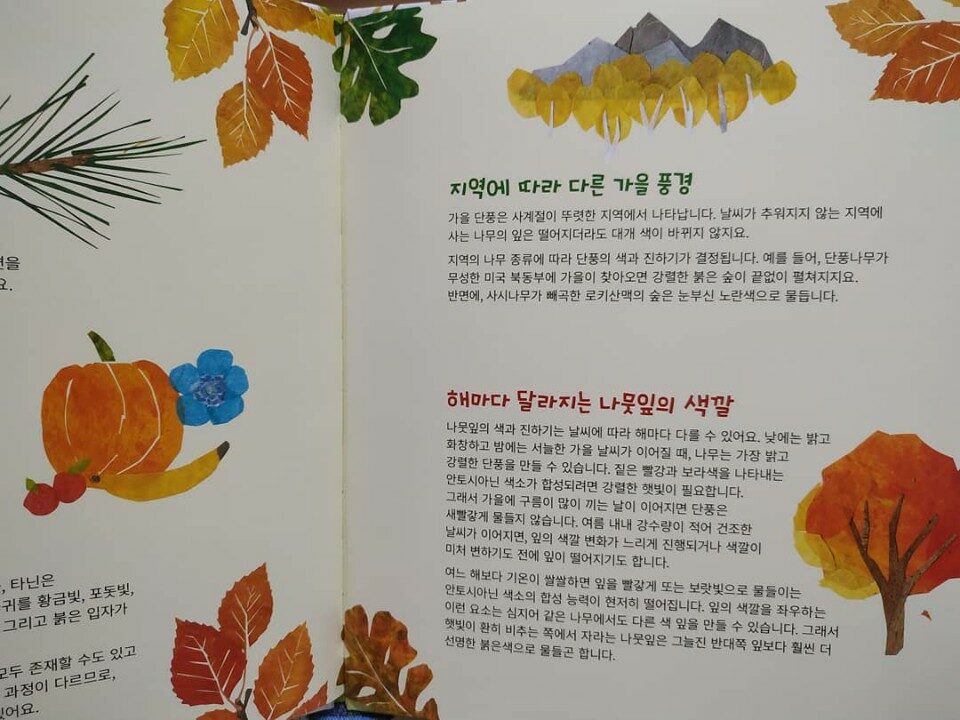 면을
요.
, 타닌은
귀를 황금빛, 포돗빛,
그리고 붉은 입자가
모두 존재할 수도 있고
과정이 다르므로,
있어요.
지역에 따라 다른 가을 풍경
가을 단풍은 사계절이 뚜렷한 지역에서 나타납니다. 날씨가 추워지지 않는 지역에
사는 나무의 잎은 떨어지더라도 대개 색이 바뀌지 않지요.
지역의 나무 종류에 따라 단풍의 색과 진하기가 결정됩니다. 예를 들어, 단풍나무가
무성한 미국 북동부에 가을이 찾아오면 강렬한 붉은 숲이 끝없이 펼쳐지지요.
반면에, 사시나무가 빼곡한 로키산맥의 숲은 눈부신 노란색으로 물듭니다.
해마다 달라지는 나뭇잎의 색깔
나뭇잎의 색과 진하기는 날씨에 따라 해마다 다를 수 있어요. 낮에는 밝고
화창하고 밤에는 서늘한 가을 날씨가 이어질 때, 나무는 가장 밝고
강렬한 단풍을 만들 수 있습니다. 짙은 빨강과 보라색을 나타내는
안토시아닌 색소가 합성되려면 강렬한 햇빛이 필요합니다.
그래서 가을에 구름이 많이 끼는 날이 이어지면 단풍은
새빨갛게 물들지 않습니다. 여름 내내 강수량이 적어 건조한
날씨가 이어지면, 잎의 색깔 변화가 느리게 진행되거나 색깔이
미처 변하기도 전에 잎이 떨어지기도 합니다.
여느 해보다 기온이 쌀쌀하면 잎을 빨갛게 또는 보랏빛으로 물들이는
안토시아닌 색소의 합성 능력이 현저히 떨어집니다. 잎의 색깔을 좌우하는
이런 요소는 심지어 같은 나무에서도 다른 색 잎을 만들 수 있습니다. 그래서
햇빛이 환히 비추는 쪽에서 자라는 나뭇잎은 그늘진 반대쪽 잎보다 훨씬 더
선명한 붉은색으로 물들곤 합니다.